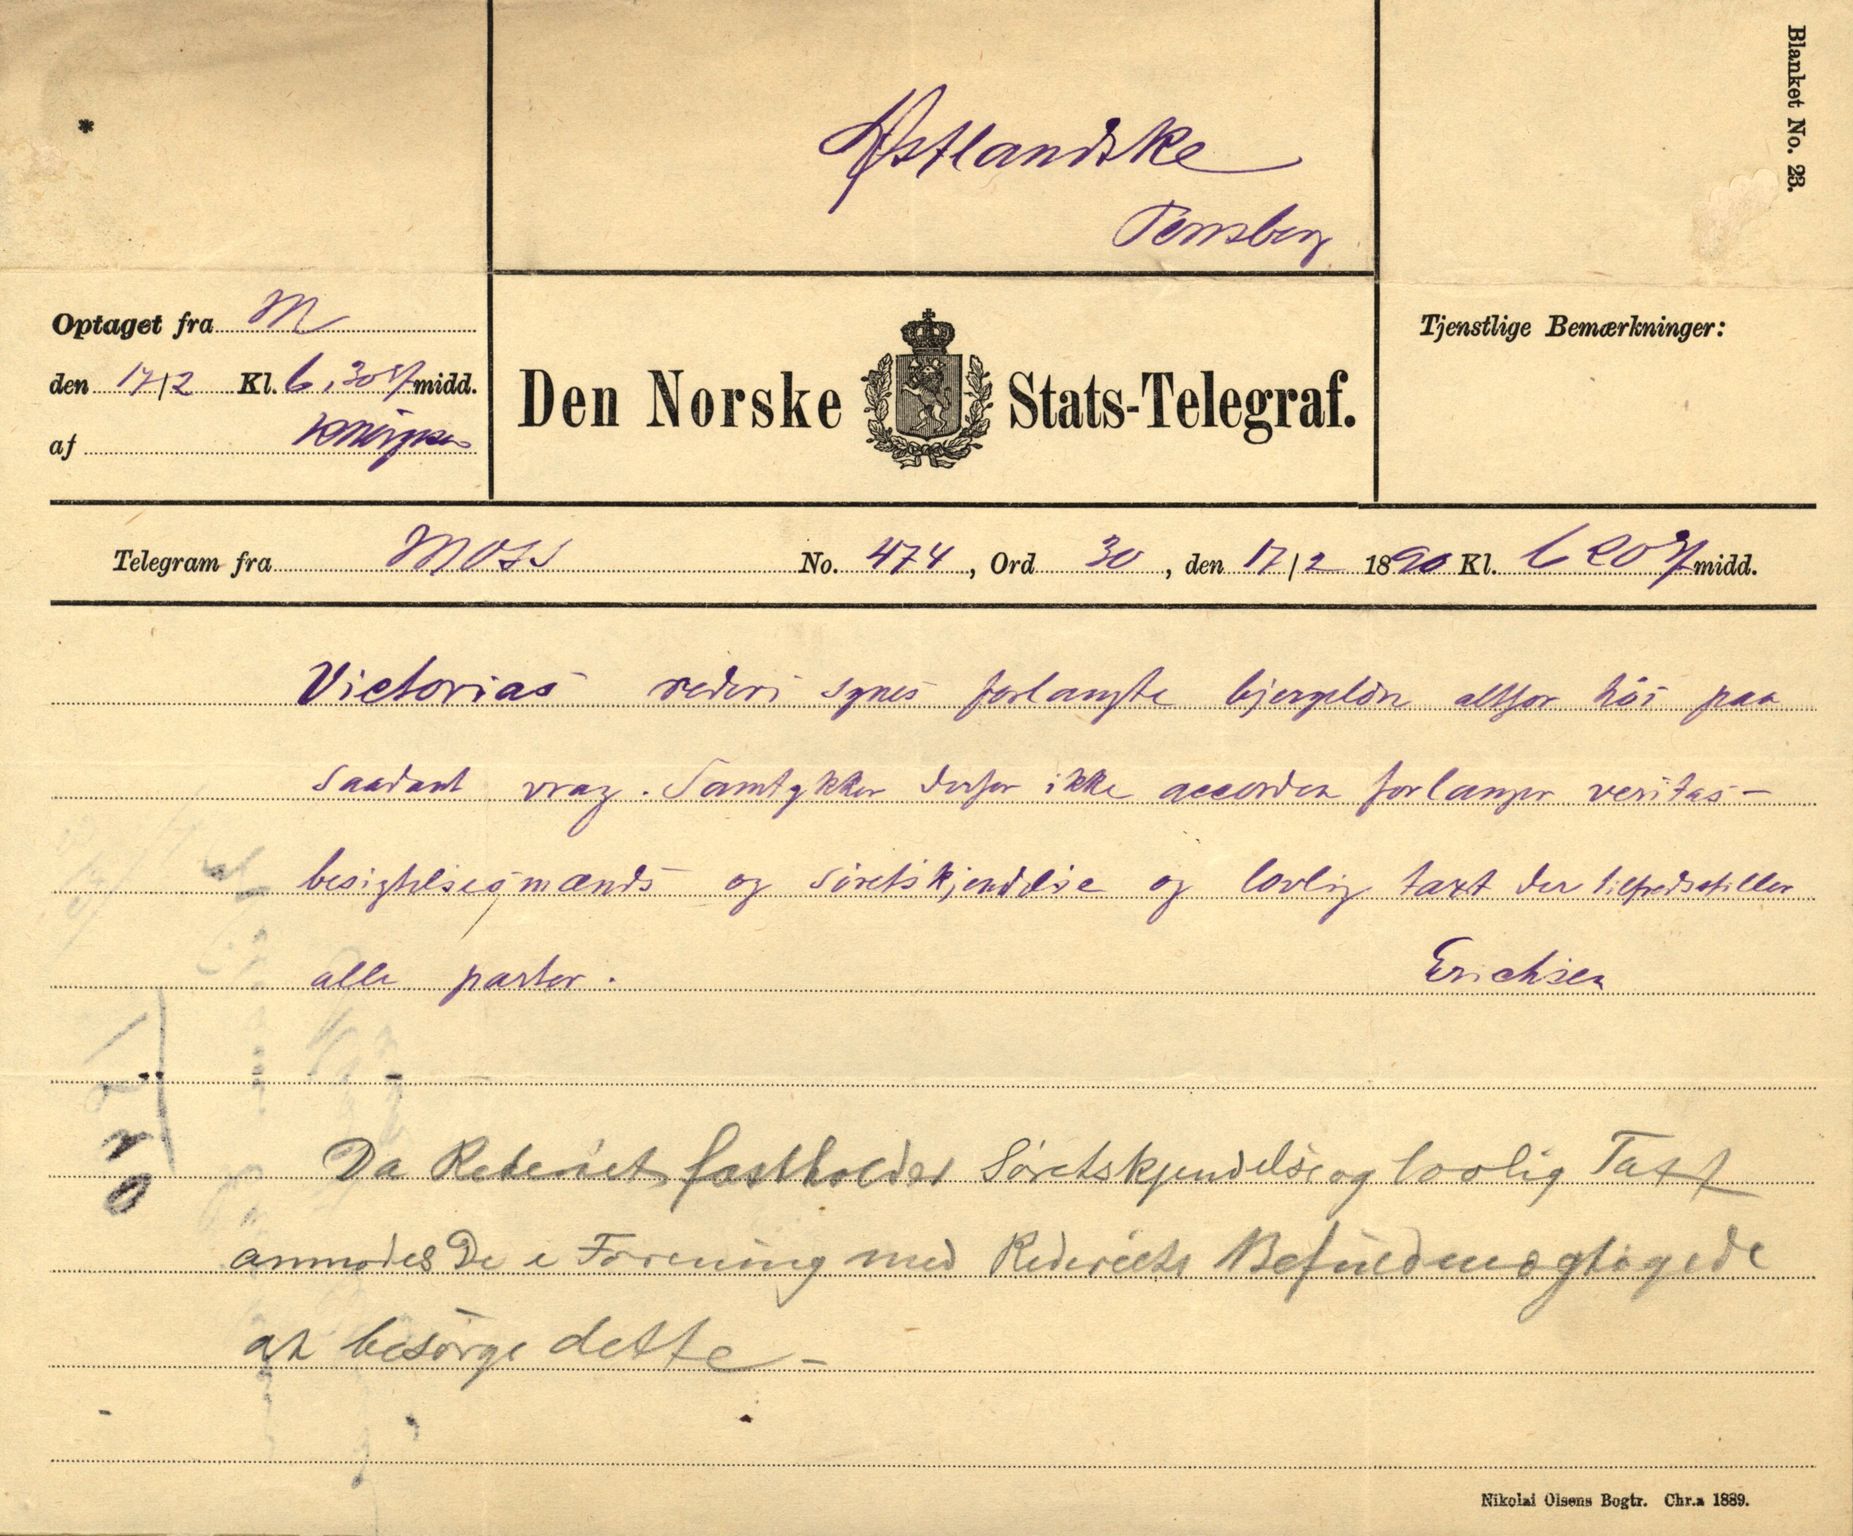 Blanket No. 23.
Østlandske
Tønsberg
Optaget fra M
den 17/2 Kl. 6,30 E midd.
af
Den Norske Stats-Telegraf.
Tjenstlige Bemærkninger:
Telegram fra Moss No. 474, Ord 30, den 17/2 1890 Kl. 6 20 E midd.
Victorias rederi synes forlangte bjergeløn altfor høi paa
saadant vrag. Samtykker derfor ikke accorden forlanger veritas-
besigtelsesmænds og søretskjendelse og lovlig taxt der tilfredsstiller
alle parter. Erichsen
Da Rederiet fastholder Søretskjendelse og lovlig Taxt
anmodes De i Forening med Rederiets Befuldmægtigede
at besørge dette -
Nikolai Olsens Bogtr. Chr.a 1889.